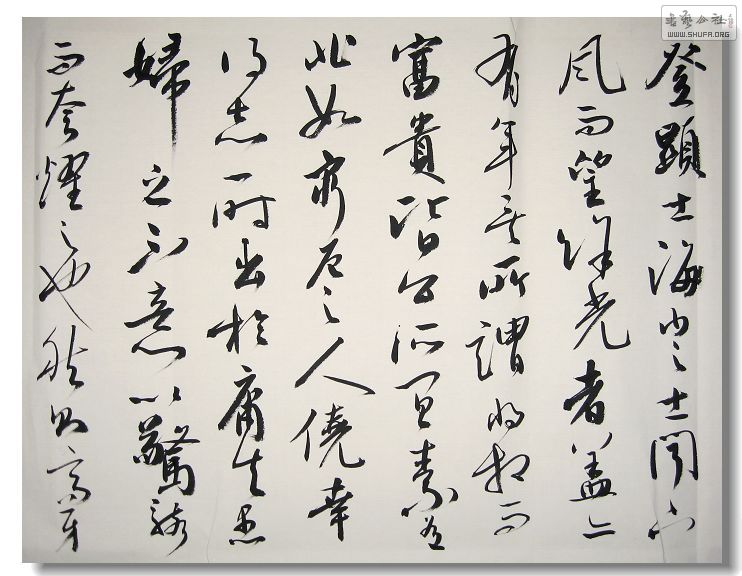 書藝公社
WWW.SHUFA.ORG
登顯士海內之士聞下
風而望餘光者蓋亦
有年矣所謂將相而
富貴皆公所宜素有
非如窮厄之人僥幸
得志一時出於庸夫愚
婦之不意以驚駭
而夸燿之也然則高牙